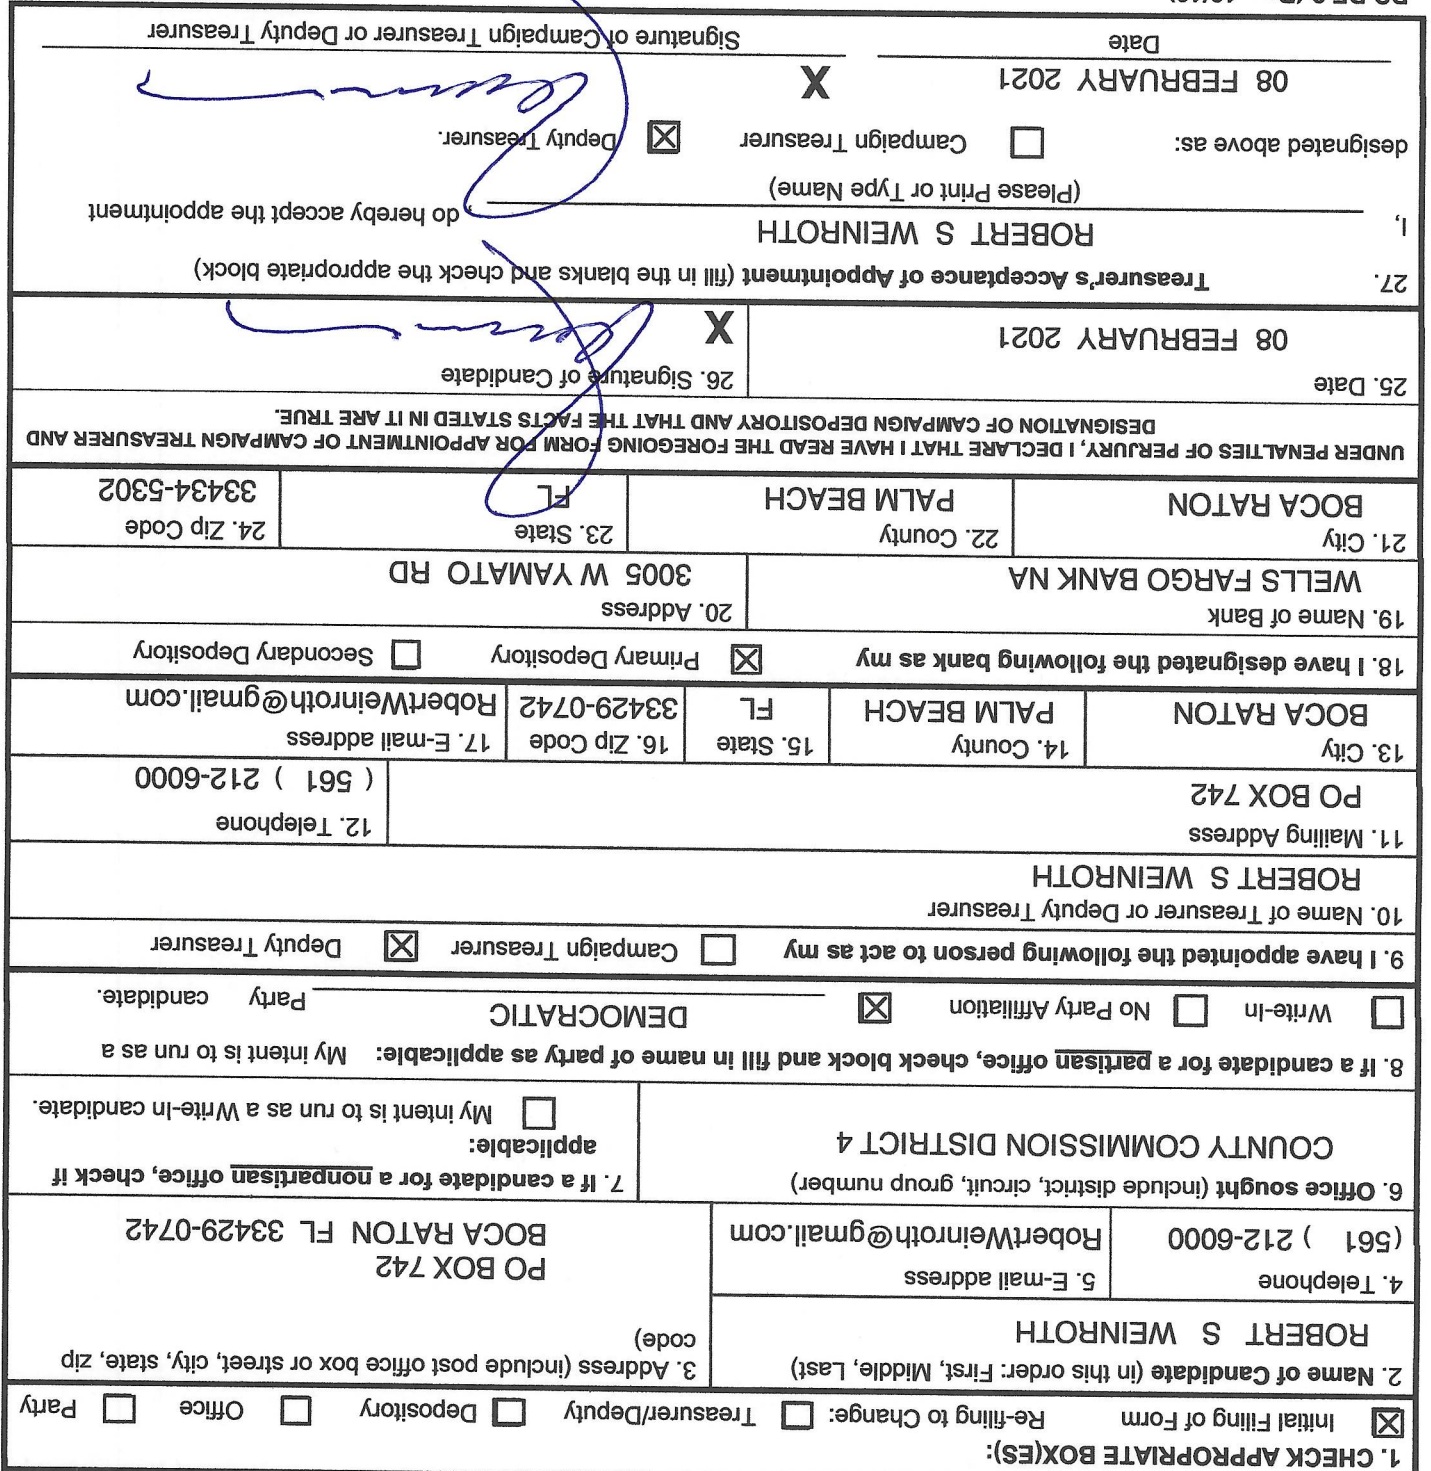 1. CHECK APPROPRIATE BOX(ES):
Initial Filing of Form Re-filing to Change: Treasurer/Deputy Depository Office Party
2. Name of Candidate (in this order: First, Middle, Last)
ROBERT S WEINROTH
3. Address (include post office box or street, city, state, zip
code)
PO BOX 742
BOCA RATON FL 33429-0742
4. Telephone
(561 ) 212-6000
5. E-mail address
RobertWeinroth@gmail.com
6. Office sought (include district, circuit, group number)
COUNTY COMMISSION DISTRICT 4
7. If a candidate for a nonpartisan office, check if
applicable:
My intent is to run as a Write-In candidate.
8. If a candidate for a partisan office, check block and fill in name of party as applicable: My intent is to run as a
Write-In No Party Affiliation DEMOCRATIC Party candidate.
9. I have appointed the following person to act as my Campaign Treasurer Deputy Treasurer
10. Name of Treasurer or Deputy Treasurer
ROBERT S WEINROTH
11. Mailing Address
PO BOX 742
12. Telephone
( 561 ) 212-6000
13. City
BOCA RATON
14. County
PALM BEACH
15. State
FL
16. Zip Code
33429-0742
17. E-mail address
RobertWeinroth@gmail.com
18. I have designated the following bank as my Primary Depository Secondary Depository
19. Name of Bank
WELLS FARGO BANK NA
20. Address
3005 W YAMATO RD
21. City
BOCA RATON
22. County
PALM BEACH
23. State
FL
24. Zip Code
33434-5302
UNDER PENALTIES OF PERJURY, I DECLARE THAT I HAVE READ THE FOREGOING FORM FOR APPOINTMENT OF CAMPAIGN TREASURER AND
DESIGNATION OF CAMPAIGN DEPOSITORY AND THAT THE FACTS STATED IN IT ARE TRUE.
25. Date
08 FEBRUARY 2021
26. Signature of Candidate
X
27. Treasurer's Acceptance of Appointment (fill in the blanks and check the appropriate block)
I, ROBERT S WEINROTH , do hereby accept the appointment
(Please Print or Type Name)
designated above as: Campaign Treasurer Deputy Treasurer.
08 FEBRUARY 2021 X
Date Signature of Campaign Treasurer or Deputy Treasurer